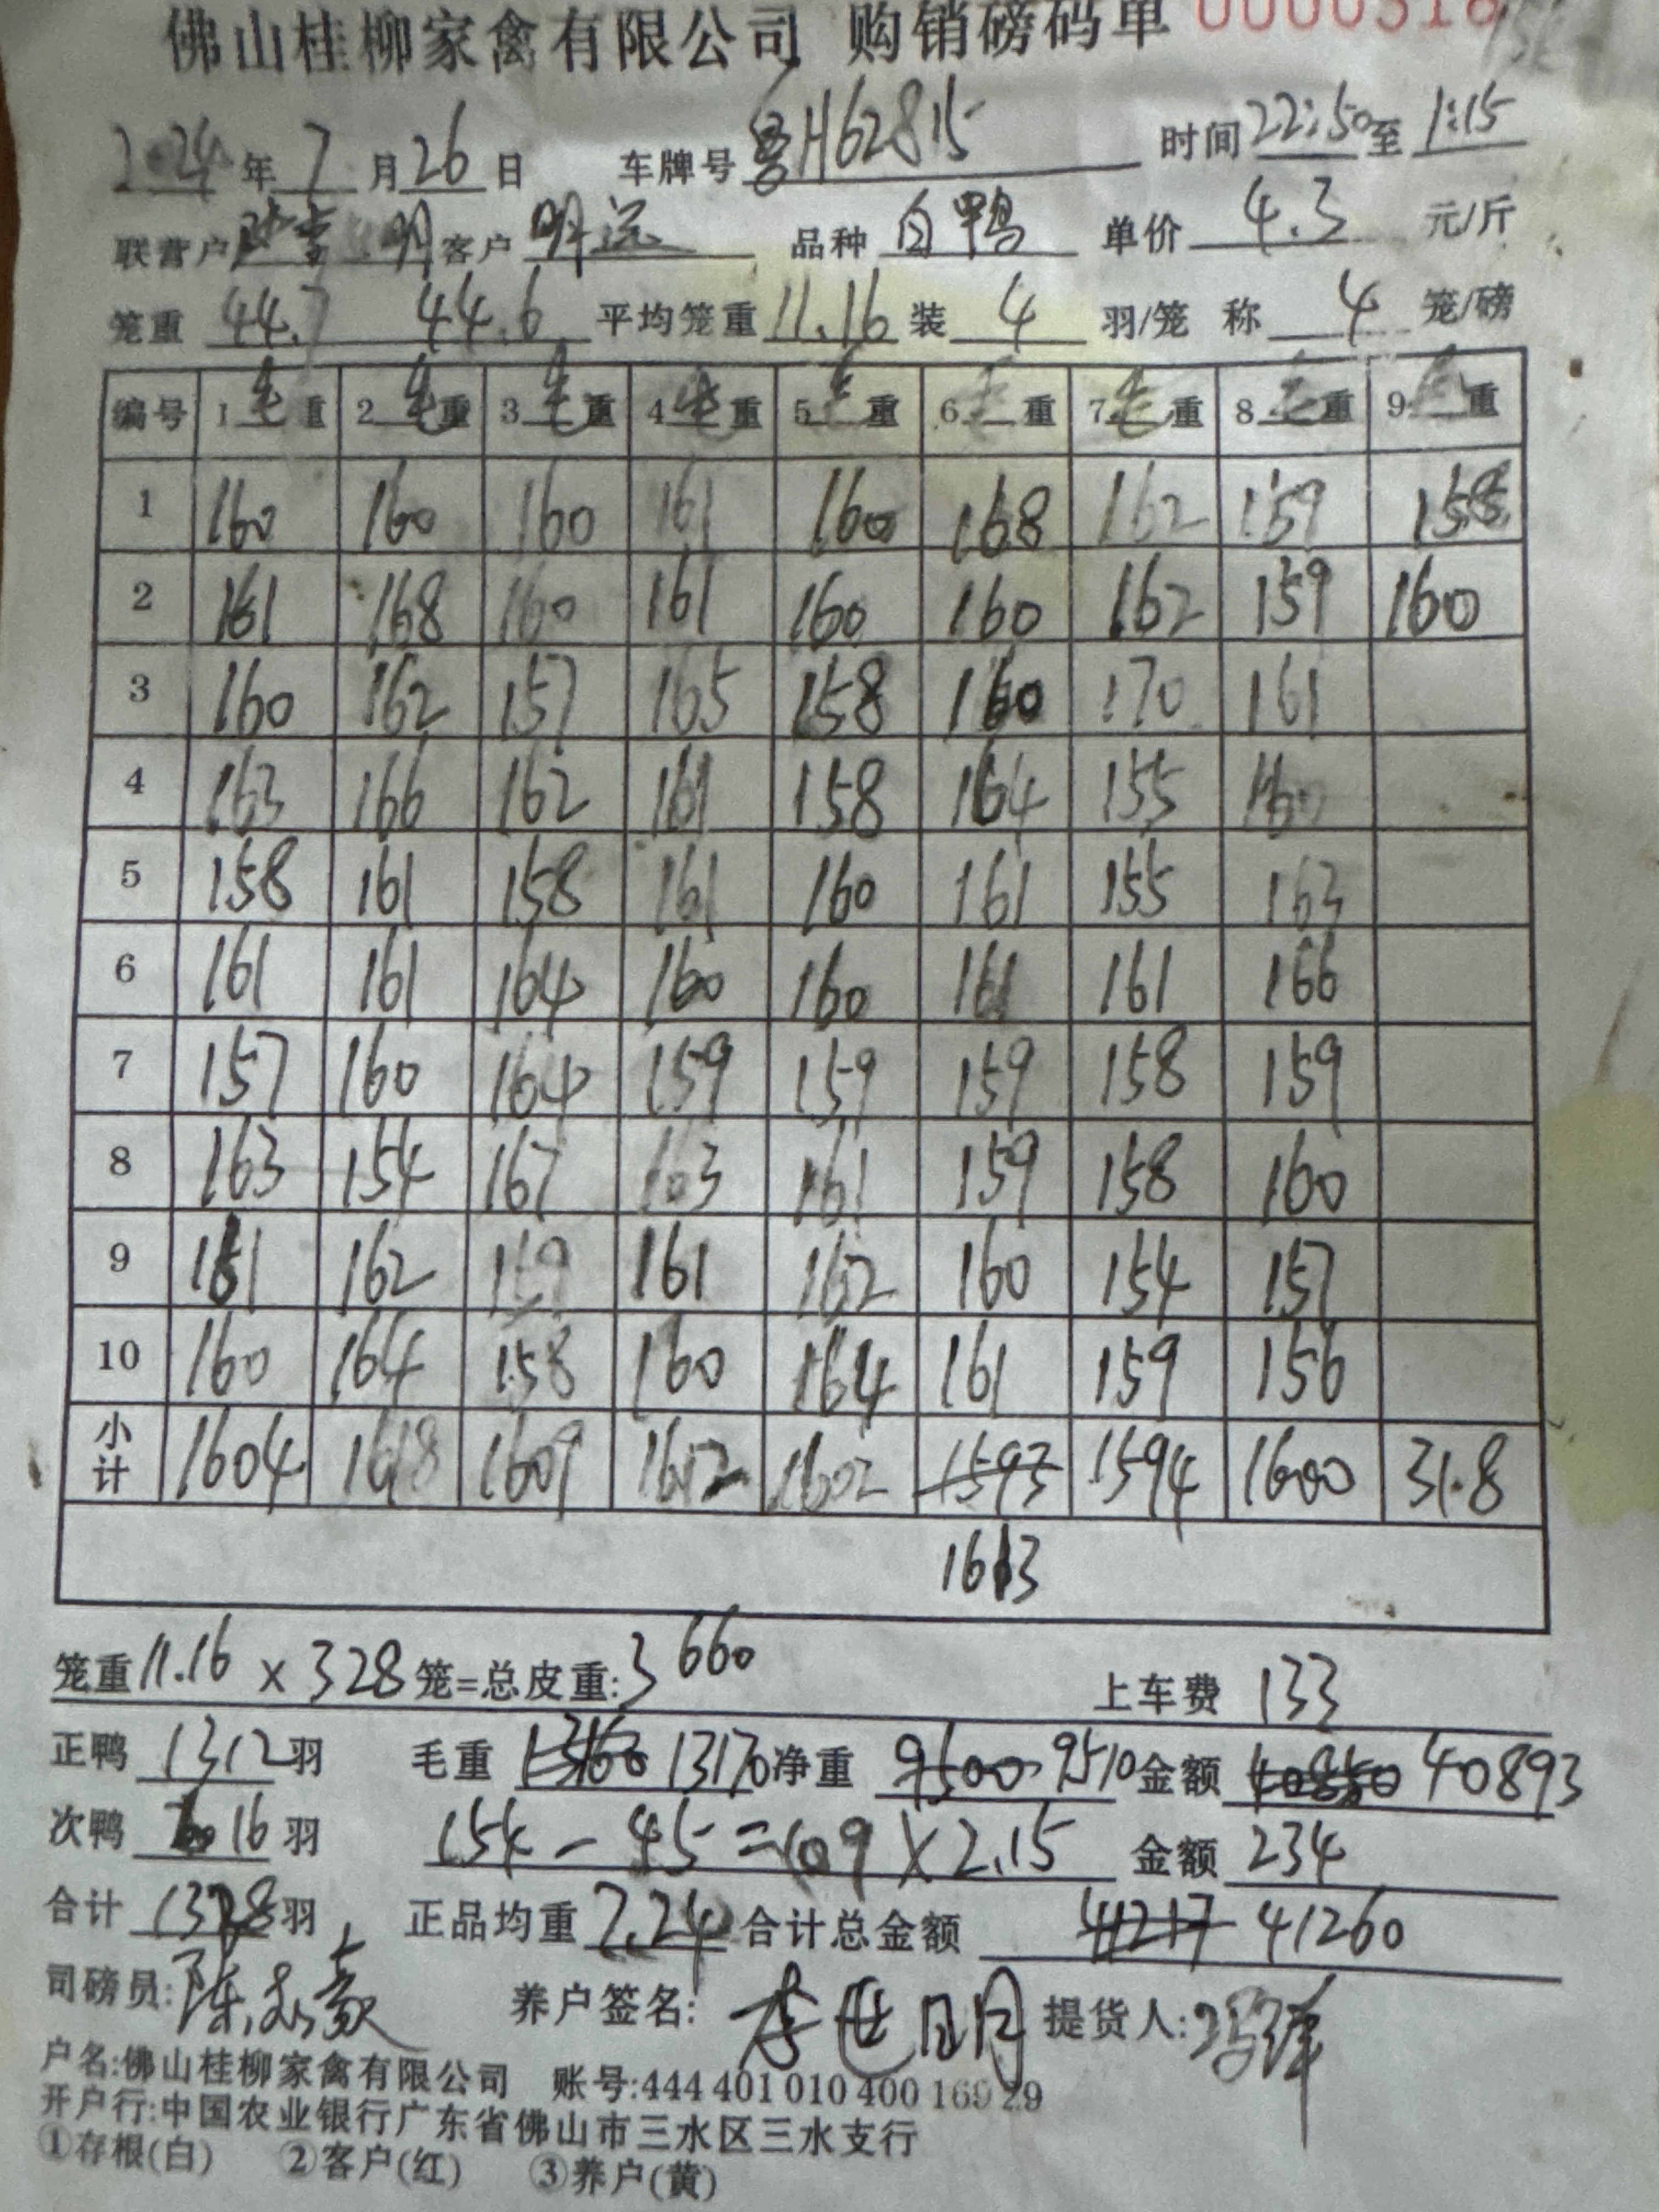 佛山桂柳家禽有限公司 购销磅码单
2024年7月26日 车牌号 粤H62815 时间 22:50至1:15
联营户 客户 明远 品种 白鸭 单价 4.3 元/斤
笼重 44.7 44.6 平均笼重 11.16 装 4 羽/笼 称 4 笼/磅
编号 1毛重 2毛重 3毛重 4毛重 5毛重 6毛重 7毛重 8毛重 9毛重
1 160 160 160 161 160 168 162 159 158
2 161 168 160 161 160 160 162 159 160
3 160 162 157 165 158 160 170 161
4 163 166 162 161 158 164 155 160
5 158 161 158 161 160 161 155 163
6 161 161 164 160 160 161 161 166
7 157 160 164 159 159 159 158 159
8 163 154 167 163 161 159 158 160
9 161 162 159 161 162 160 154 157
10 160 164 158 160 164 161 159 156
小计 1604 1618 1609 1612 1602 1593 1594 1600 318
1613
笼重 11.16 × 328 笼=总皮重: 3660 上车费 133
正鸭 1312 羽 毛重 13160 13170 净重 9500 9510 金额 40850 40893
次鸭 16 羽 154 - 45 = 109 × 2.15 金额 234
合计 1328 羽 正品均重 7.24 合计总金额 41217 41260
司磅员: 养户签名: 李世明 提货人:
户名:佛山桂柳家禽有限公司 账号:444 401 010 400 169 29
开户行:中国农业银行广东省佛山市三水区三水支行
①存根(白) ②客户(红) ③养户(黄)